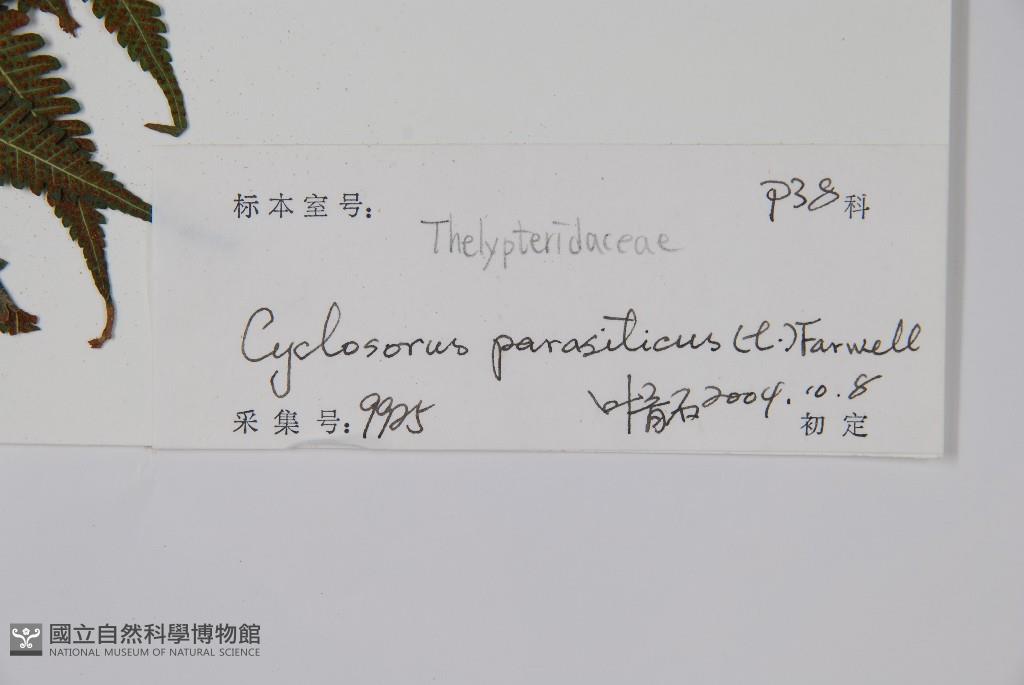 标本室号: P38科
Thelypteridaceae
Cyclosorus parasiticus (L.) Farwell
叶育石 2004.10.8
采集号: 9925 初定
國立自然科學博物館
NATIONAL MUSEUM OF NATURAL SCIENCE